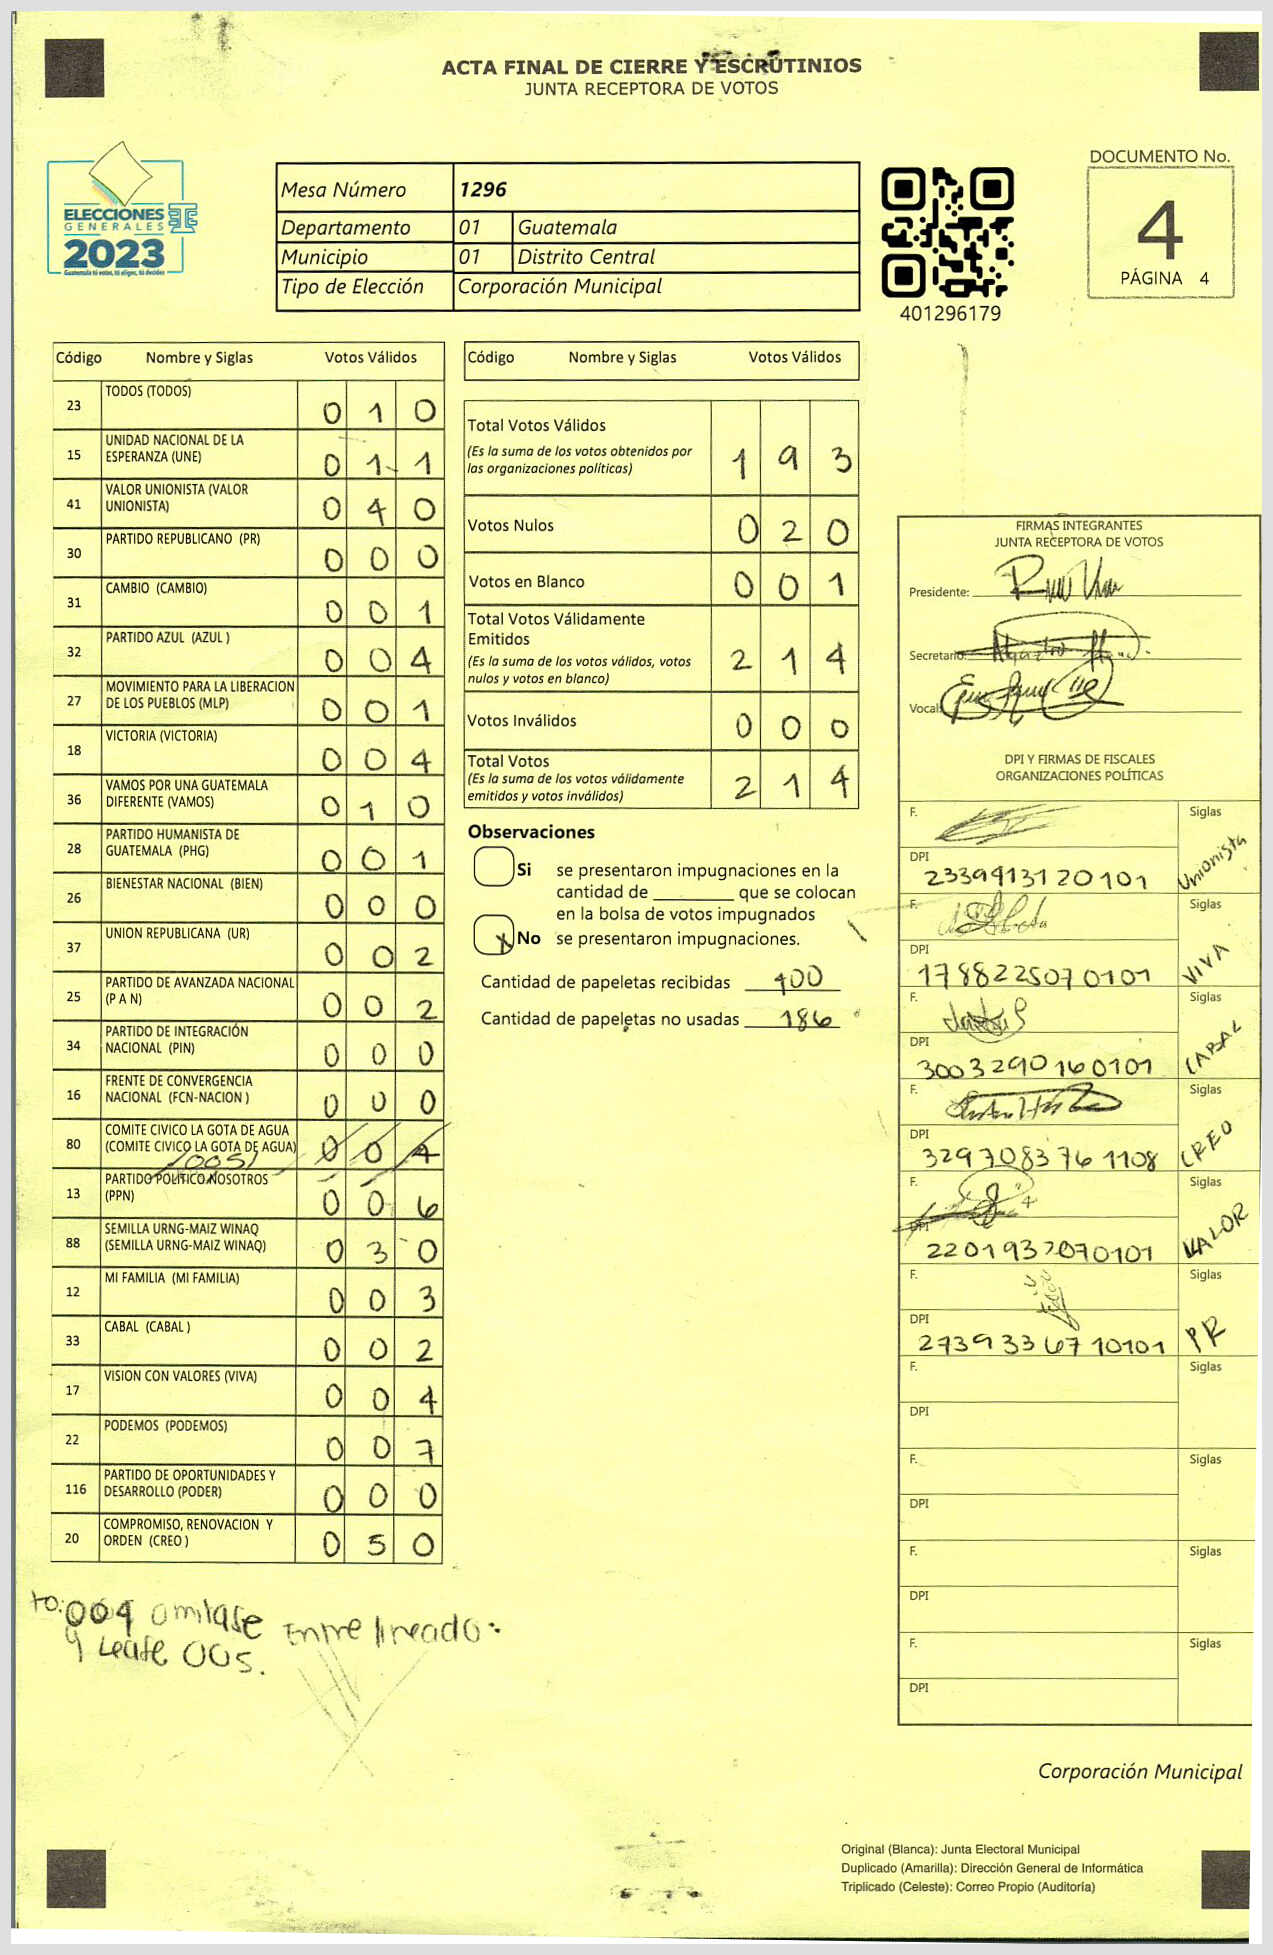 ACTA FINAL DE CIERRE Y ESCRUTINIOS
JUNTA RECEPTORA DE VOTOS
ELECCIONES
GENERALES
2023
Guatemala tú votas, tú eliges, tú decides
Mesa Número 1296
Departamento 01 Guatemala
Municipio 01 Distrito Central
Tipo de Elección Corporación Municipal
401296179
DOCUMENTO No.
4
PÁGINA 4
Código Nombre y Siglas Votos Válidos
23 TODOS (TODOS) 0 1 0
15 UNIDAD NACIONAL DE LA
ESPERANZA (UNE) 0 1 1
41 VALOR UNIONISTA (VALOR
UNIONISTA) 0 4 0
30 PARTIDO REPUBLICANO (PR) 0 0 0
31 CAMBIO (CAMBIO) 0 0 1
32 PARTIDO AZUL (AZUL ) 0 0 4
27 MOVIMIENTO PARA LA LIBERACION
DE LOS PUEBLOS (MLP) 0 0 1
18 VICTORIA (VICTORIA) 0 0 4
36 VAMOS POR UNA GUATEMALA
DIFERENTE (VAMOS) 0 1 0
28 PARTIDO HUMANISTA DE
GUATEMALA (PHG) 0 0 1
26 BIENESTAR NACIONAL (BIEN) 0 0 0
37 UNION REPUBLICANA (UR) 0 0 2
25 PARTIDO DE AVANZADA NACIONAL
(P A N) 0 0 2
34 PARTIDO DE INTEGRACIÓN
NACIONAL (PIN) 0 0 0
16 FRENTE DE CONVERGENCIA
NACIONAL (FCN-NACION ) 0 0 0
80 COMITE CIVICO LA GOTA DE AGUA
(COMITE CIVICO LA GOTA DE AGUA) 0 0 4
/005/
13 PARTIDO POLITICO NOSOTROS
(PPN) 0 0 6
88 SEMILLA URNG-MAIZ WINAQ
(SEMILLA URNG-MAIZ WINAQ) 0 3 0
12 MI FAMILIA (MI FAMILIA) 0 0 3
33 CABAL (CABAL ) 0 0 2
17 VISION CON VALORES (VIVA) 0 0 4
22 PODEMOS (PODEMOS) 0 0 7
116 PARTIDO DE OPORTUNIDADES Y
DESARROLLO (PODER) 0 0 0
20 COMPROMISO, RENOVACION Y
ORDEN (CREO ) 0 5 0
to: 004 omitase Entre lineado:
y Lease 005.
Código Nombre y Siglas Votos Válidos
Total Votos Válidos
(Es la suma de los votos obtenidos por
las organizaciones políticas) 1 9 3
Votos Nulos 0 2 0
Votos en Blanco 0 0 1
Total Votos Válidamente
Emitidos
(Es la suma de los votos válidos, votos
nulos y votos en blanco) 2 1 4
Votos Inválidos 0 0 0
Total Votos
(Es la suma de los votos válidamente
emitidos y votos inválidos) 2 1 4
Observaciones
Si se presentaron impugnaciones en la
cantidad de ________ que se colocan
en la bolsa de votos impugnados
X No se presentaron impugnaciones.
Cantidad de papeletas recibidas 400
Cantidad de papeletas no usadas 186
FIRMAS INTEGRANTES
JUNTA RECEPTORA DE VOTOS
Presidente:
Secretario:
Vocal:
DPI Y FIRMAS DE FISCALES
ORGANIZACIONES POLÍTICAS
F. Siglas
DPI Unionista
2339413120101
F. Siglas
DPI VIVA
1788225070101
F. Siglas
DPI CABAL
3003290160101
F. Siglas
DPI CREO
3297083761108
F. Siglas
DPI VALOR
2201937070101
F. Siglas
DPI PR
2739336710101
F. Siglas
DPI
F. Siglas
DPI
F. Siglas
DPI
F. Siglas
DPI
Corporación Municipal
Original (Blanca): Junta Electoral Municipal
Duplicado (Amarilla): Dirección General de Informática
Triplicado (Celeste): Correo Propio (Auditoría)